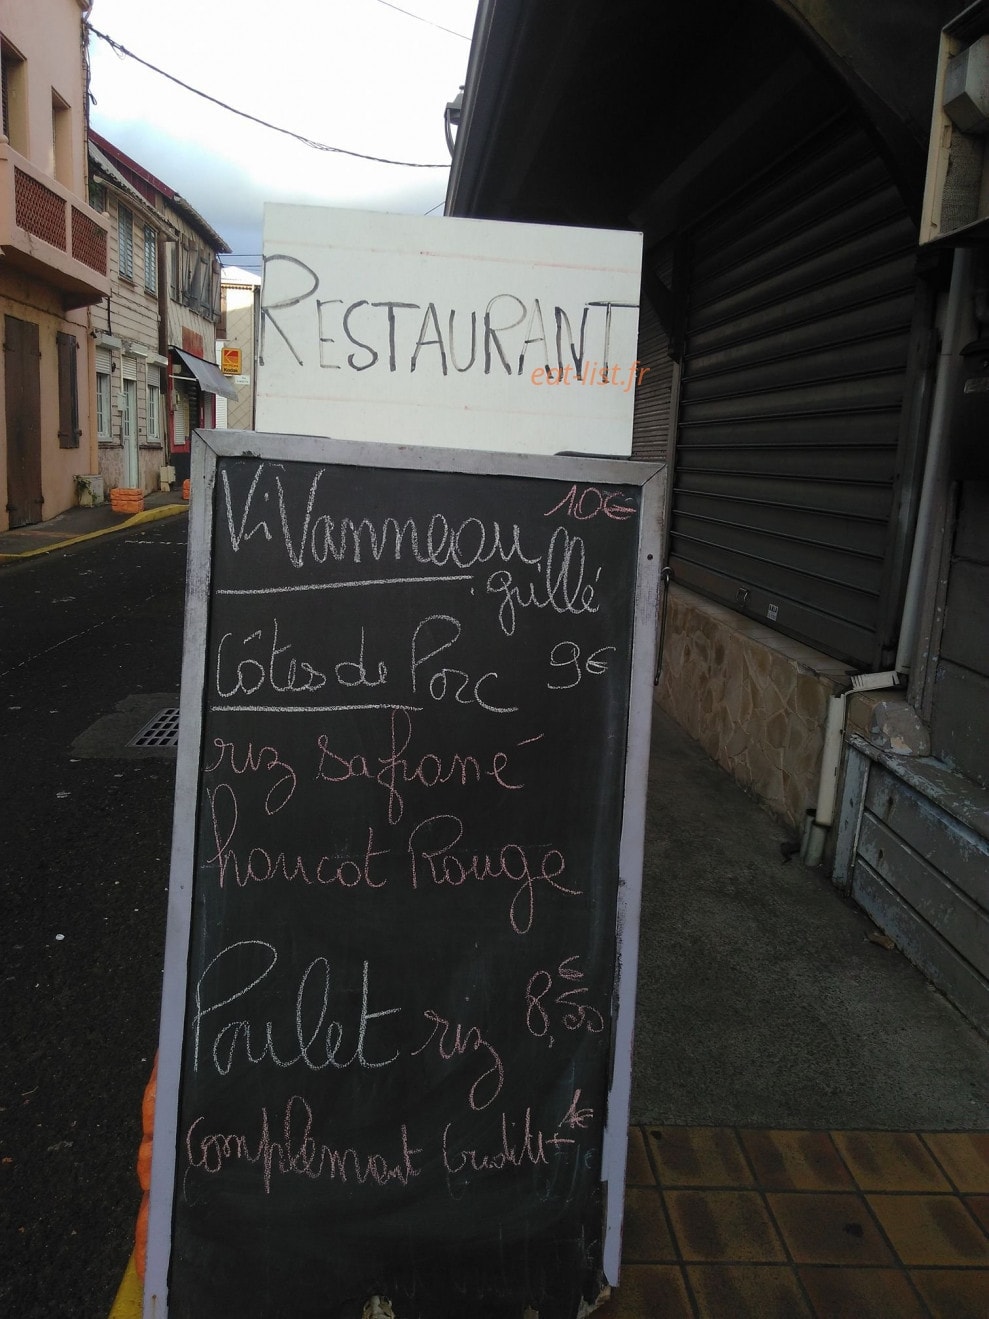 RESTAURANT
eat-list.fr
Kodak
ViVanneau 10€
grillé
Côtes de Porc 9€
riz safrané
haricot Rouge
Poulet riz 8,50€
complément Crudité + 1€